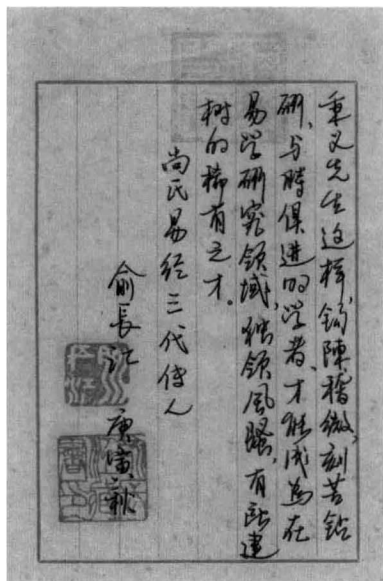 秉义先生这样，钩陳稽微，刻苦鉆
研，与時俱進的学者，才能成為在
易学研究領域，独領風騷，有所建
树的稀有之才。
尚氏易经三代传人
俞長江 庚寅秋